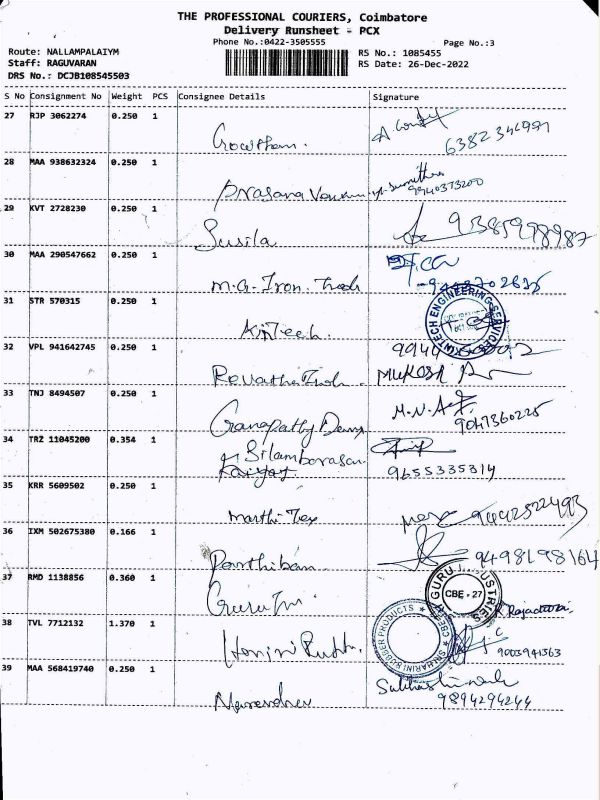 THE PROFESSIONAL COURIERS, Coimbatore
Delivery Runsheet - PCX
Phone No.:0422-3505555
Page No.:3
Route: NALLAMPALAIYM
RS No.: 1085455
Staff: RAGUVARAN
RS Date: 26-Dec-2022
DRS No.: DCJB108545503
S No Consignment No Weight PCS Consignee Details Signature
27 RJP 3062274 0.250 1
Gowtham.
28 MAA 938632324 0.250 1
Prasana
9940373200
29 KVT 2728230 0.250 1
Susila
9385998987
30 MAA 290547662 0.250 1
M.G. Iron.
31 STR 570315 0.250 1
KINTECH ENGINEERING SERVICES
32 VPL 941642745 0.250 1
Revathi
MUKESH
33 TNJ 8494507 0.250 1
Ganapathy
M.N.
9047360225
34 TRZ 11045200 0.354 1
Silambarasan
9655335314
35 KRR 5609502 0.250 1
Marthi Tex
9442522493
36 IXM 502675380 0.166 1
Parthiban
9498198164
37 RMD 1138856 0.360 1
GURU INDUSTRIES
CBE - 27
38 TVL 7712132 1.370 1
SRI HARINI RUBBER PRODUCTS
Harini
9003941363
39 MAA 568419740 0.250 1
Narendren
9894294244